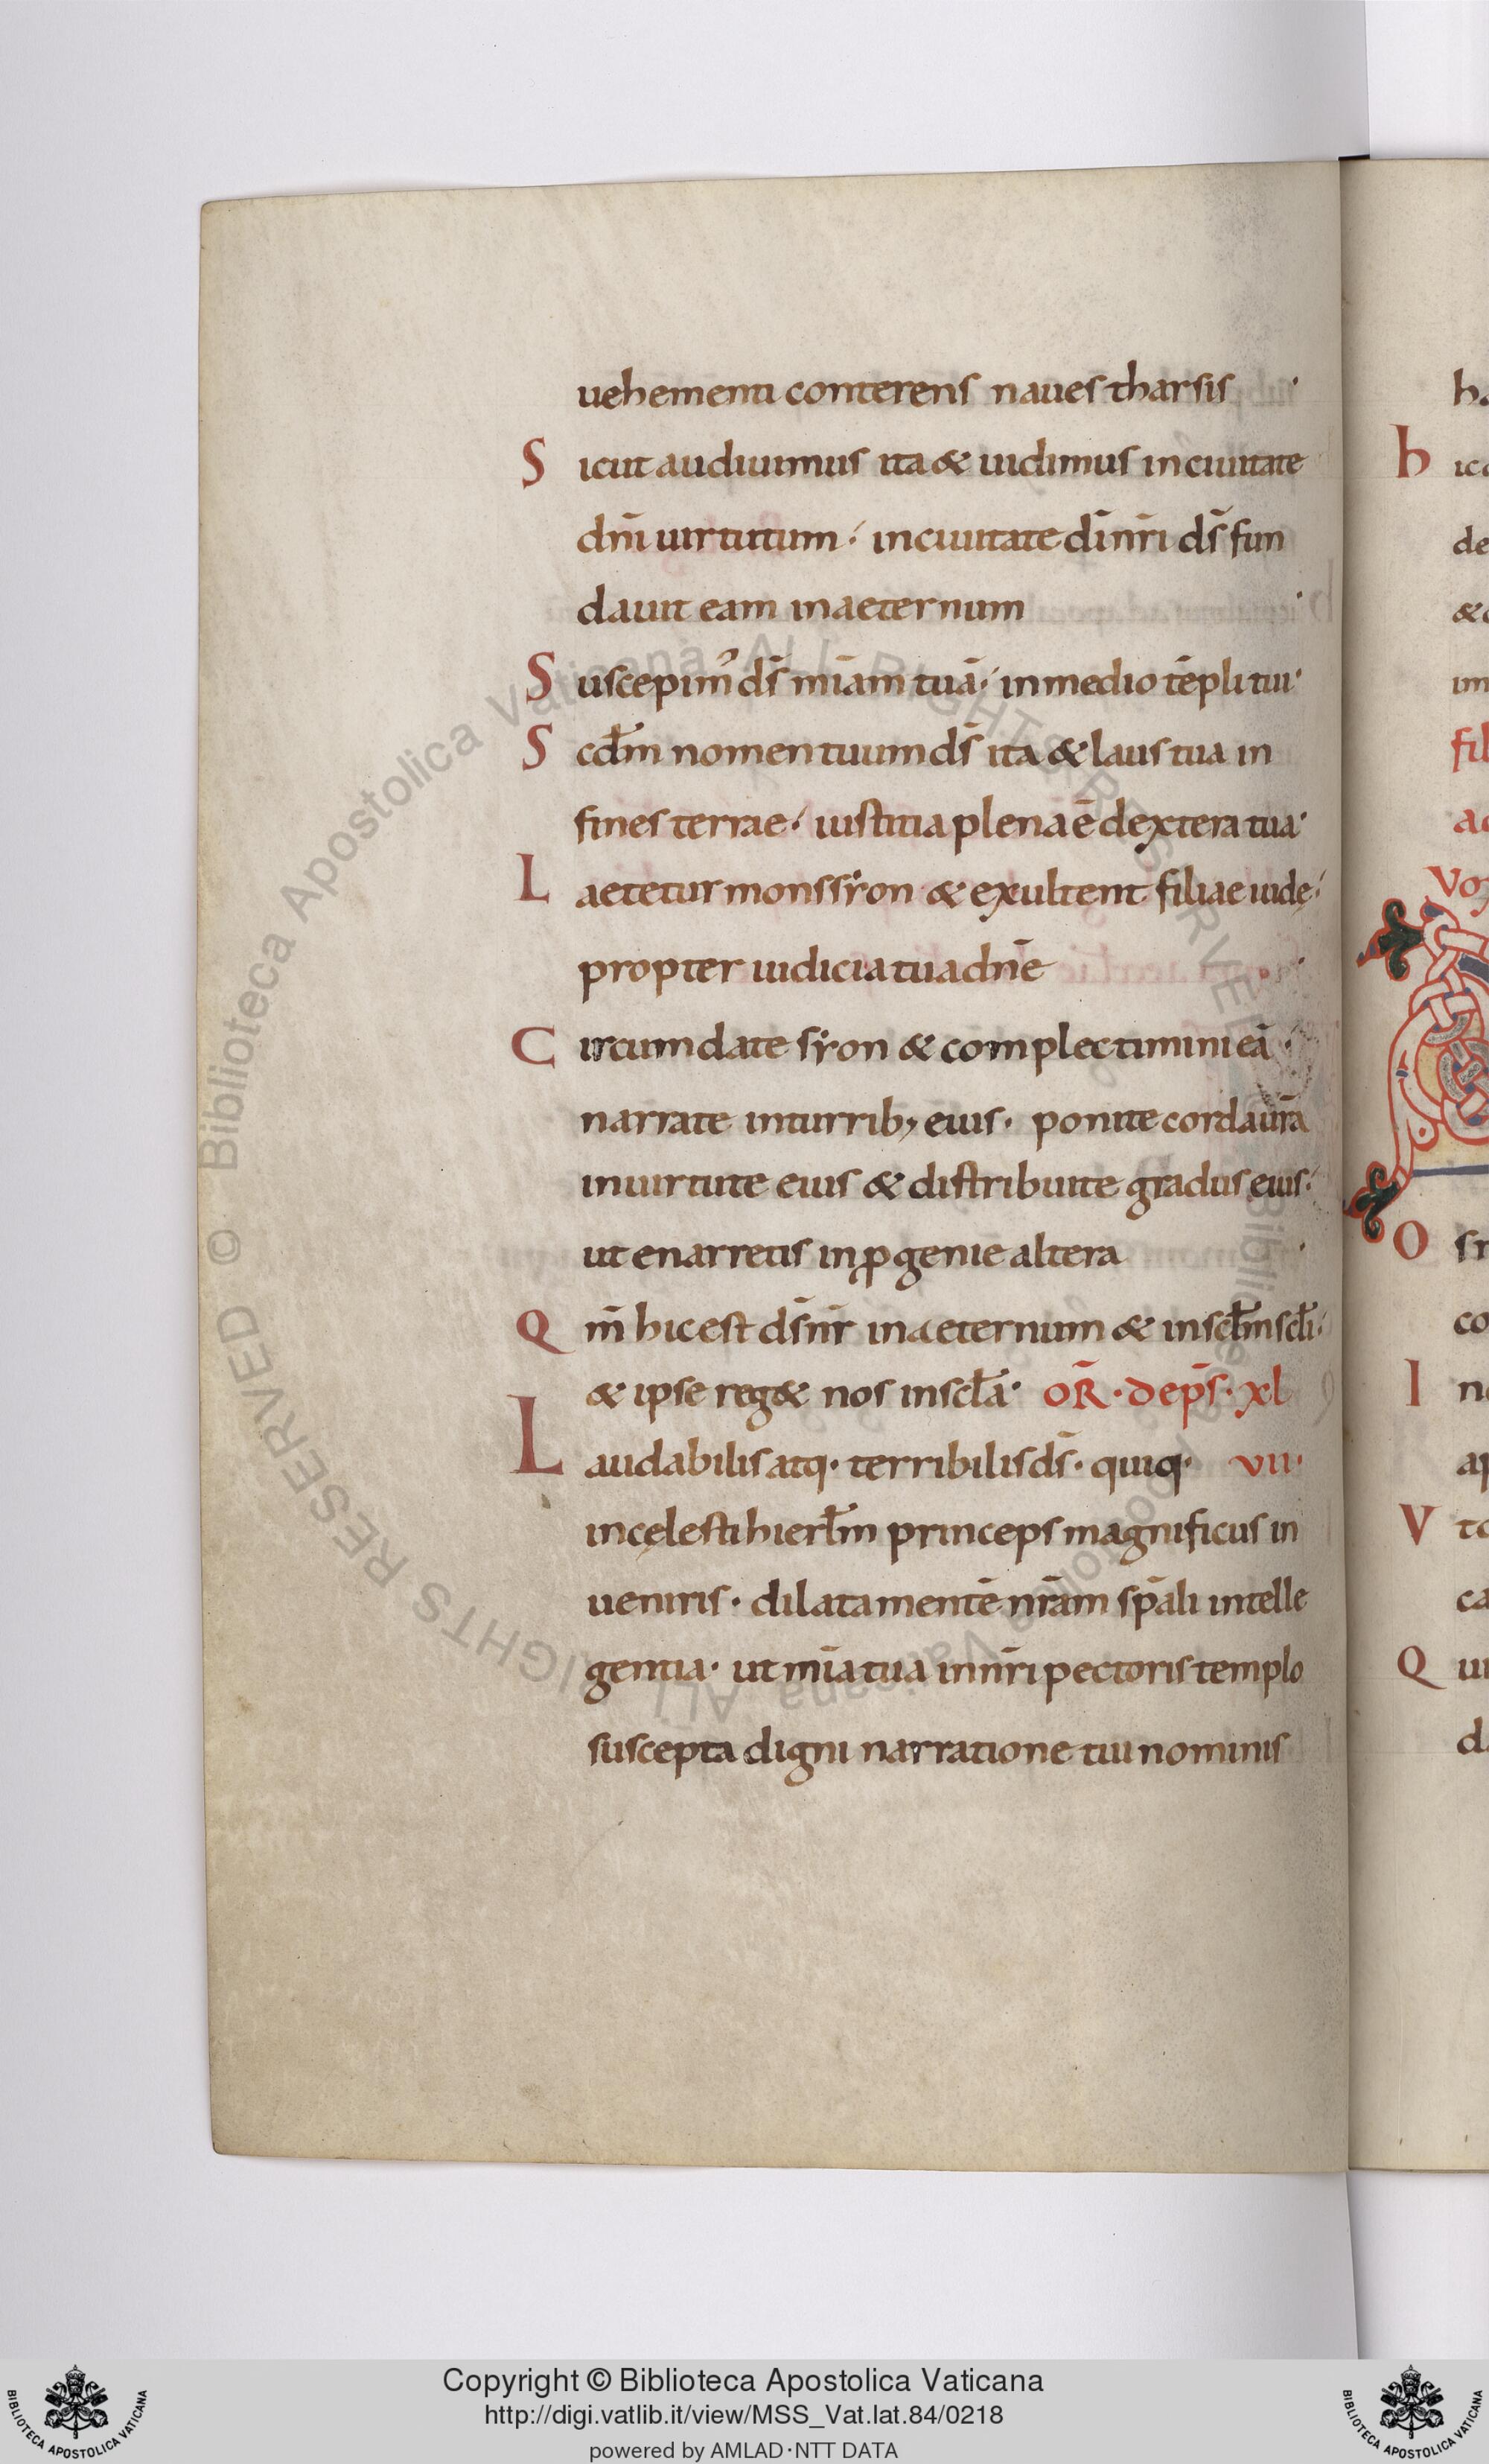 uehementi conterens naues tharsis ·
S icut audiuimus ita & uidimus in ciuitate
dn̄i uirtutum · in ciuitate dī nr̄i ds̄ fun
dauit eam in aeternum ·
S uscepim᾽ ds̄ mīam tuā · in medio tēpli tui ·
S cdm̄ nomen tuum ds̄ ita & laus tua in
fines terrae · iustitia plena ē dextera tua ·
L aetetur mons syon & exultent filiae iudę ·
propter iudicia tua dnē ·
C ircumdate syon & complectimini eā ·
narrate in turrib; eius · ponite corda ur̄a
in uirtute eius & distribuite gradus eius ·
ut enarretis in ꝓgenie altera ·
Q m̄ hic est ds̄ nr̄ in aeternum & in sclm̄ scli ·
& ipse reg& nos in scłā · OR̄ · de ps̄ · xl
L audabilis atq · terribilis ds̄ · quiq · VII ·
in cęlesti hierłm princeps magnificus in
ueniris · dilata mentē nrām spāli intelle
gentia · ut mīa tua in nr̄i pectoris templo
suscepta digni narratione tui nominis
h
de
&
im
fil
ac
Vo
O
co
I
ap
V
ca
Q
d
© Biblioteca Apostolica Vaticana ALL RIGHTS RESERVED
Copyright © Biblioteca Apostolica Vaticana
http://digi.vatlib.it/view/MSS_Vat.lat.84/0218
powered by AMLAD·NTT DATA
BIBLIOTECA APOSTOLICA VATICANA
BIBLIOTECA APOSTOLICA VATICANA